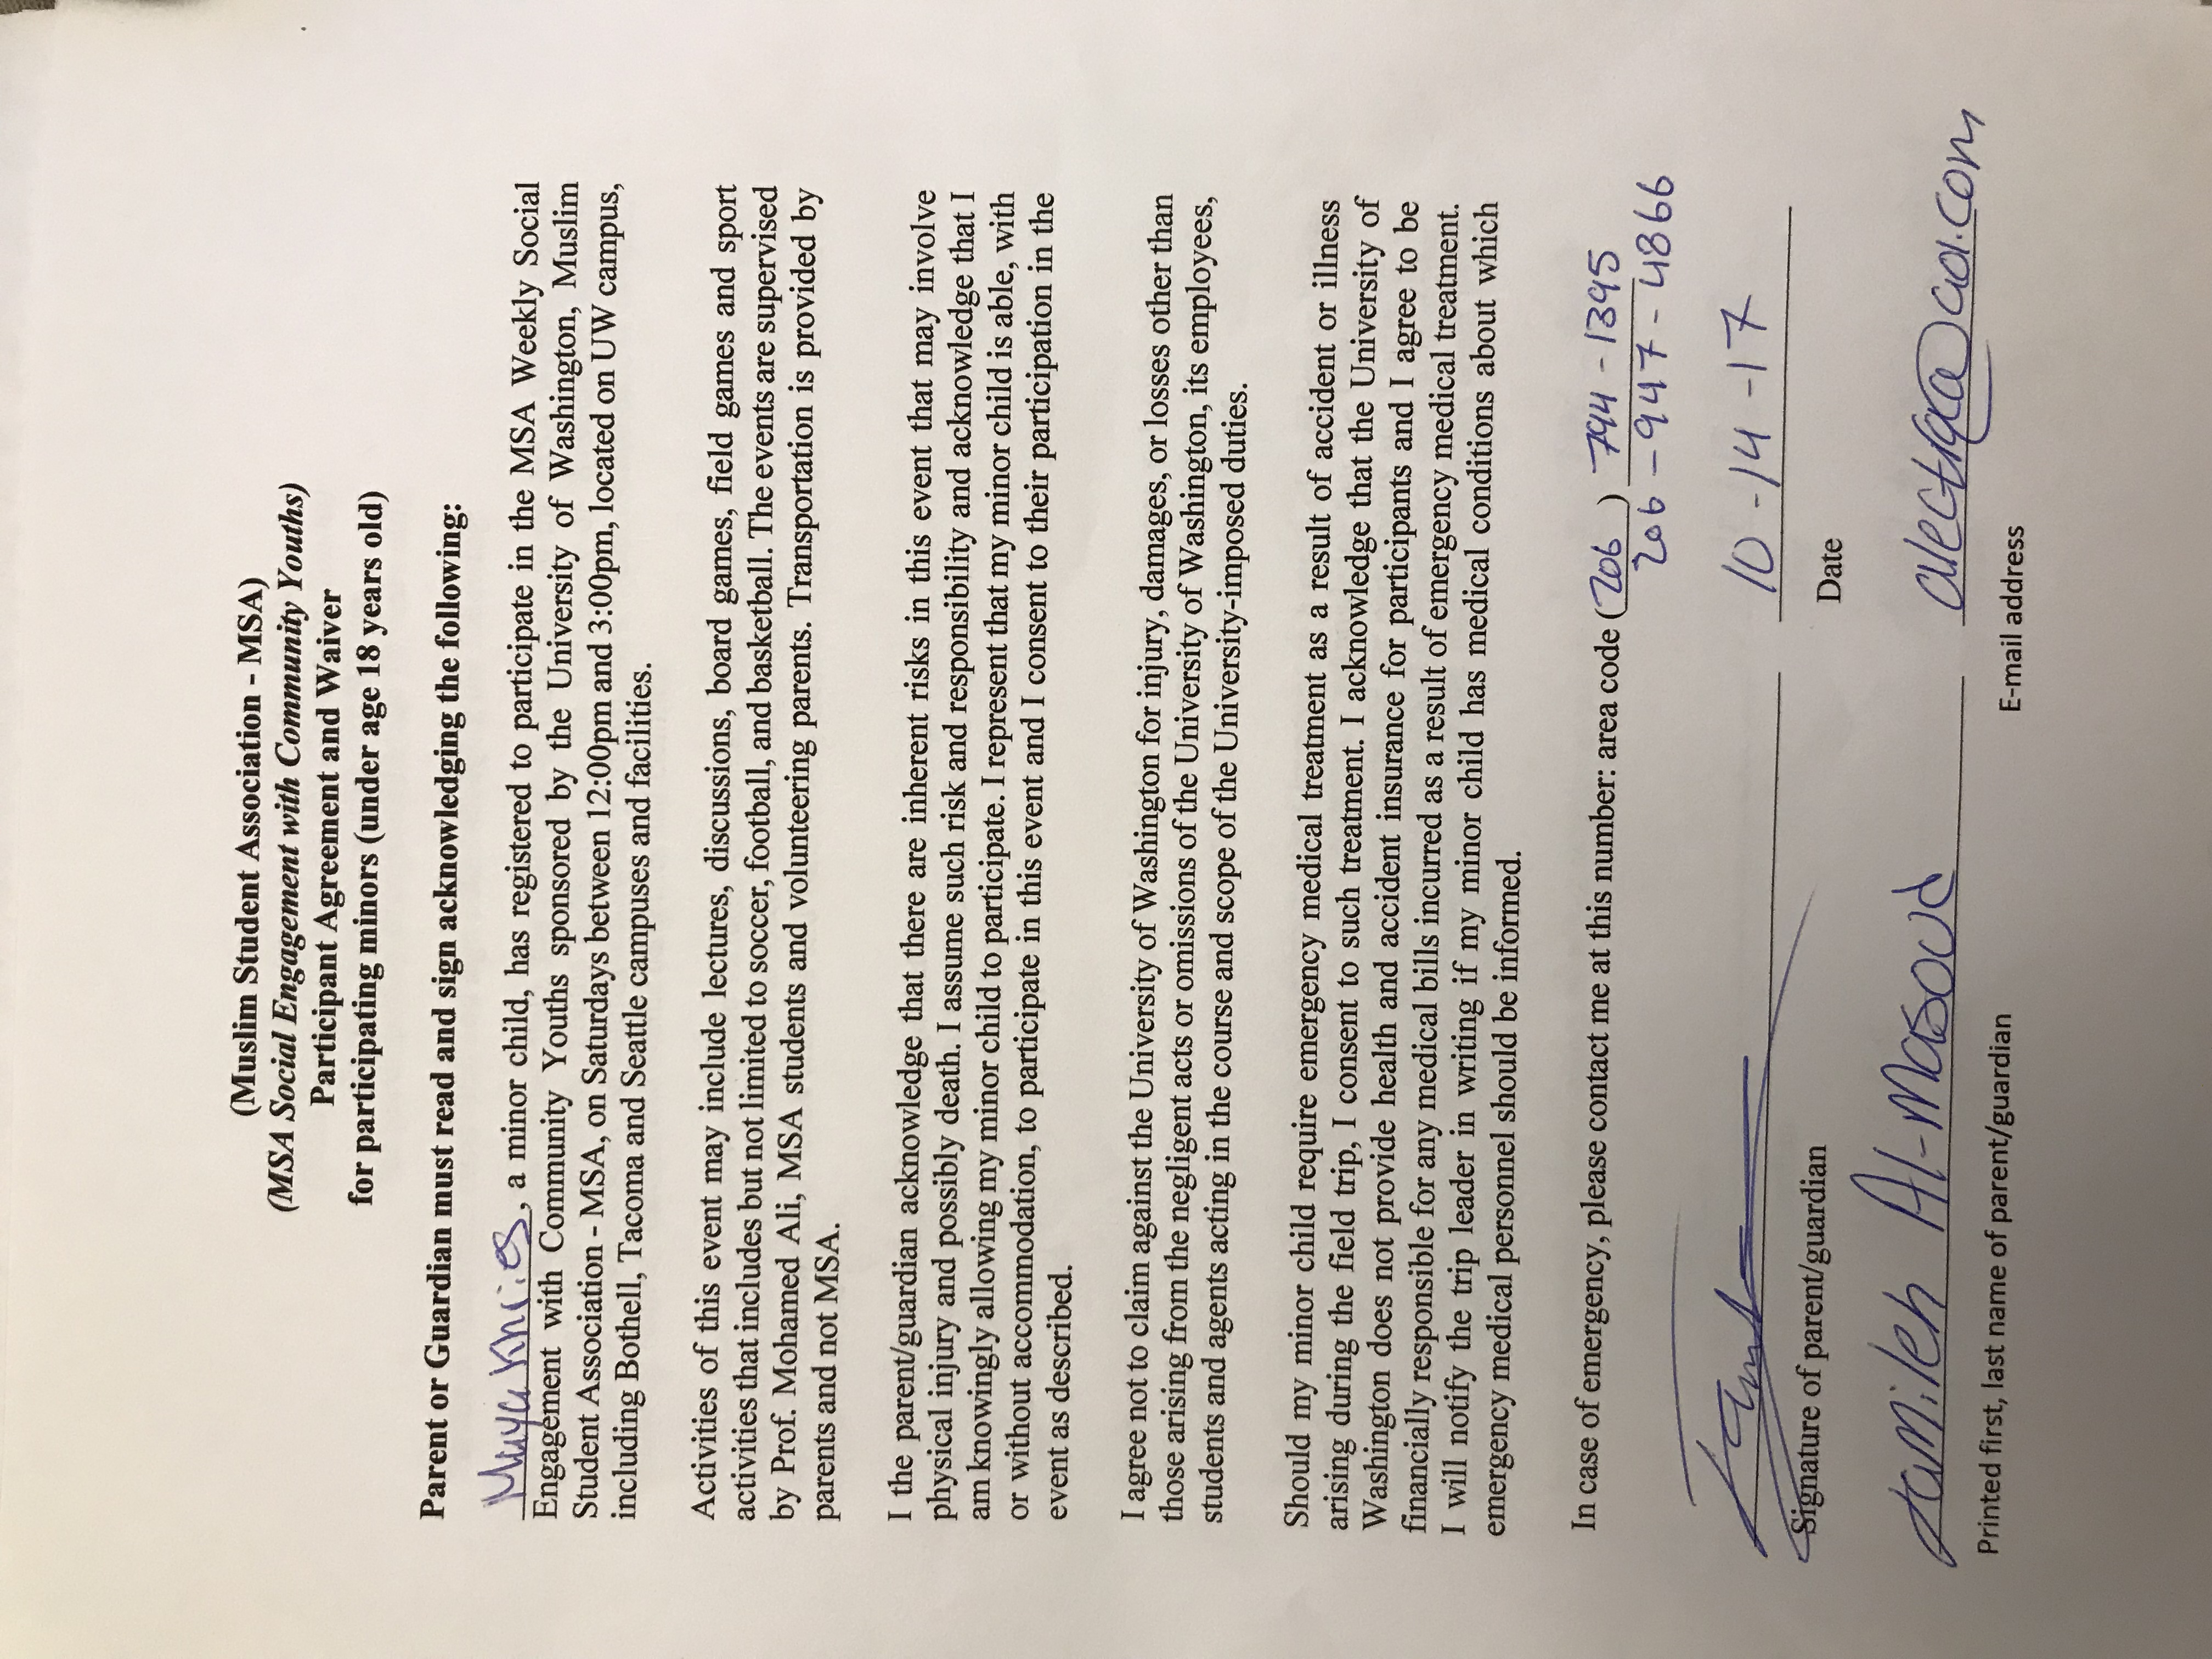 (Muslim Student Association - MSA)
(MSA Social Engagement with Community Youths)
Participant Agreement and Waiver
for participating minors (under age 18 years old)
Parent or Guardian must read and sign acknowledging the following:
Maya Khries, a minor child, has registered to participate in the MSA Weekly Social
Engagement with Community Youths sponsored by the University of Washington, Muslim
Student Association - MSA, on Saturdays between 12:00pm and 3:00pm, located on UW campus,
including Bothell, Tacoma and Seattle campuses and facilities.
Activities of this event may include lectures, discussions, board games, field games and sport
activities that includes but not limited to soccer, football, and basketball. The events are supervised
by Prof. Mohamed Ali, MSA students and volunteering parents. Transportation is provided by
parents and not MSA.
I the parent/guardian acknowledge that there are inherent risks in this event that may involve
physical injury and possibly death. I assume such risk and responsibility and acknowledge that I
am knowingly allowing my minor child to participate. I represent that my minor child is able, with
or without accommodation, to participate in this event and I consent to their participation in the
event as described.
I agree not to claim against the University of Washington for injury, damages, or losses other than
those arising from the negligent acts or omissions of the University of Washington, its employees,
students and agents acting in the course and scope of the University-imposed duties.
Should my minor child require emergency medical treatment as a result of accident or illness
arising during the field trip, I consent to such treatment. I acknowledge that the University of
Washington does not provide health and accident insurance for participants and I agree to be
financially responsible for any medical bills incurred as a result of emergency medical treatment.
I will notify the trip leader in writing if my minor child has medical conditions about which
emergency medical personnel should be informed.
In case of emergency, please contact me at this number: area code (206) 794-1395
206-947-4866
10-14-17
Signature of parent/guardian
Date
Jamileh Al-Masoud
Printed first, last name of parent/guardian
E-mail address